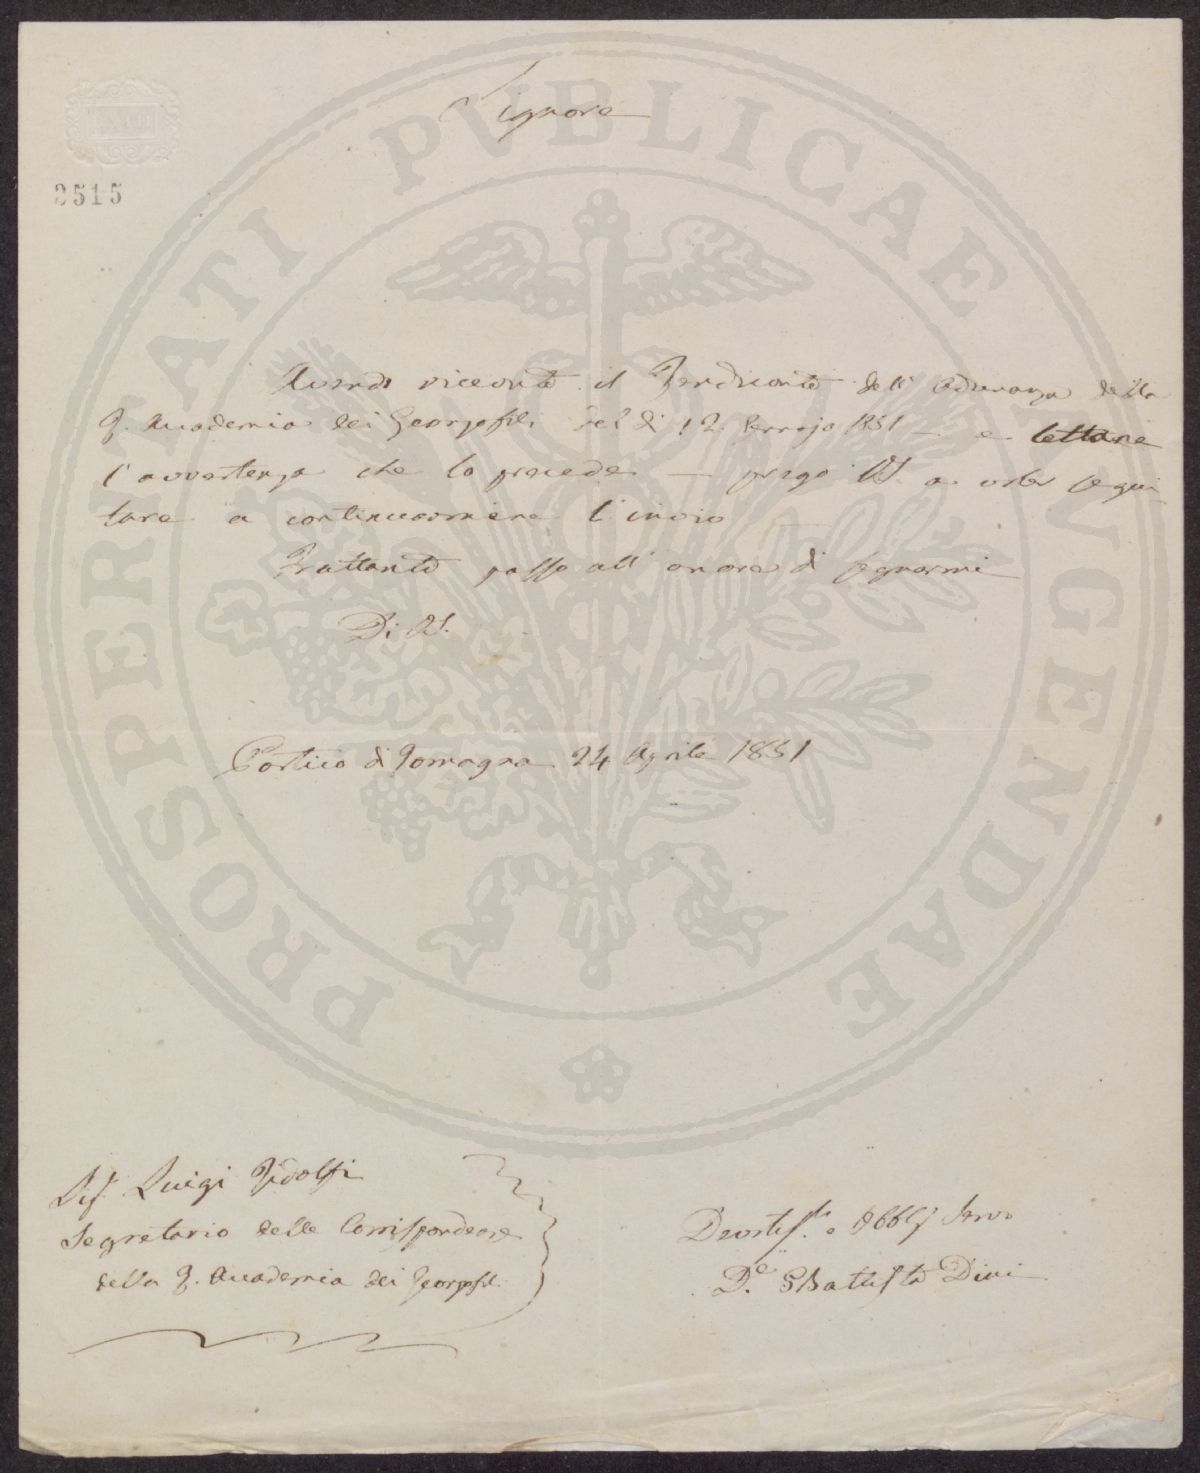 Signore
2515
Avendo ricevuto il Rendiconto dell' Adunanza della
R. Accademia dei Georgofili del dì 12. Gennajo 1851 — e lettane
l'avvertenza che lo precede — prego VS. a voler segui-
tare a continuarmene l'invio
Frattanto passo all' onore di segnarmi
Di VS.
Portico di Romagna 24 Aprile 1851
Sig. Luigi Ridolfi
Segretario delle Corrispondenze
della R. Accademia dei Georgofili
Devotis.mo e Obblg Servo
D.e GBattista Dini
PROSPERITATI PVBLICAE AVGENDAE